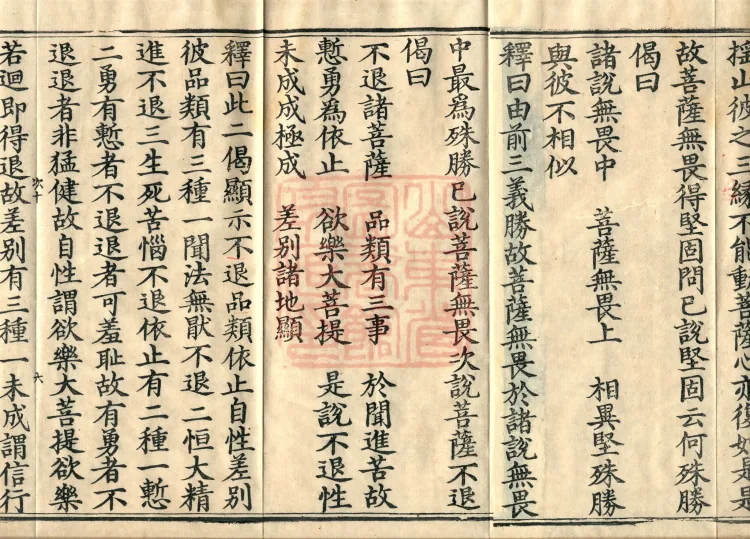 搖山彼之三緣不能動菩薩心亦復如是是
故菩薩無畏得堅固問已說堅固云何殊勝
偈曰
諸說無畏中 菩薩無畏上 相異堅殊勝
與彼不相似
釋曰由前三義勝故菩薩無畏於諸說無畏
中最為殊勝已說菩薩無畏次說菩薩不退
偈曰
不退諸菩薩 品類有三事 於聞進苦故
慙勇為依止 欲樂大菩提 是說不退性
未成成極成 差別諸地顯
釋曰此二偈顯示不退品類依止自性差別
彼品類有三種一聞法無猒不退二恒大精
進不退三生死苦惱不退依止有二種一慙
二勇有慙者不退退者可羞恥故有勇者不
退退者非猛健故自性謂欲樂大菩提欲樂
若迴即得退故差別有三種一未成謂信行
六